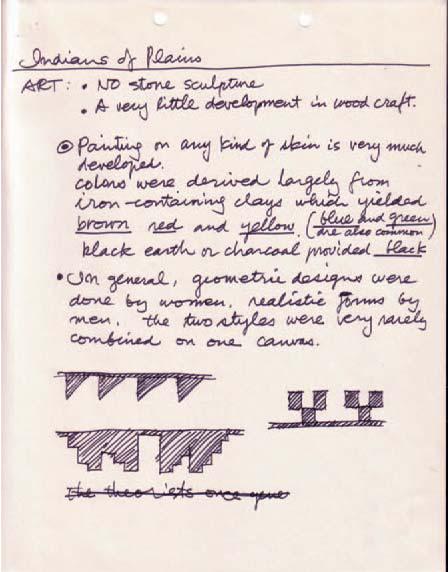 Indians of Plains
ART: • NO stone sculpture
• A very little development in wood craft.
⊙ Painting on any kind of skin is very much
developed.
colors were derived largely from
iron-containing clays which yielded
brown red and yellow. (blue and green
are also common)
black earth or charcoal provided black
• In general, geometric designs were
done by women, realistic forms by
men. the two styles were very rarely
combined on one canvas.
The theorists once gave